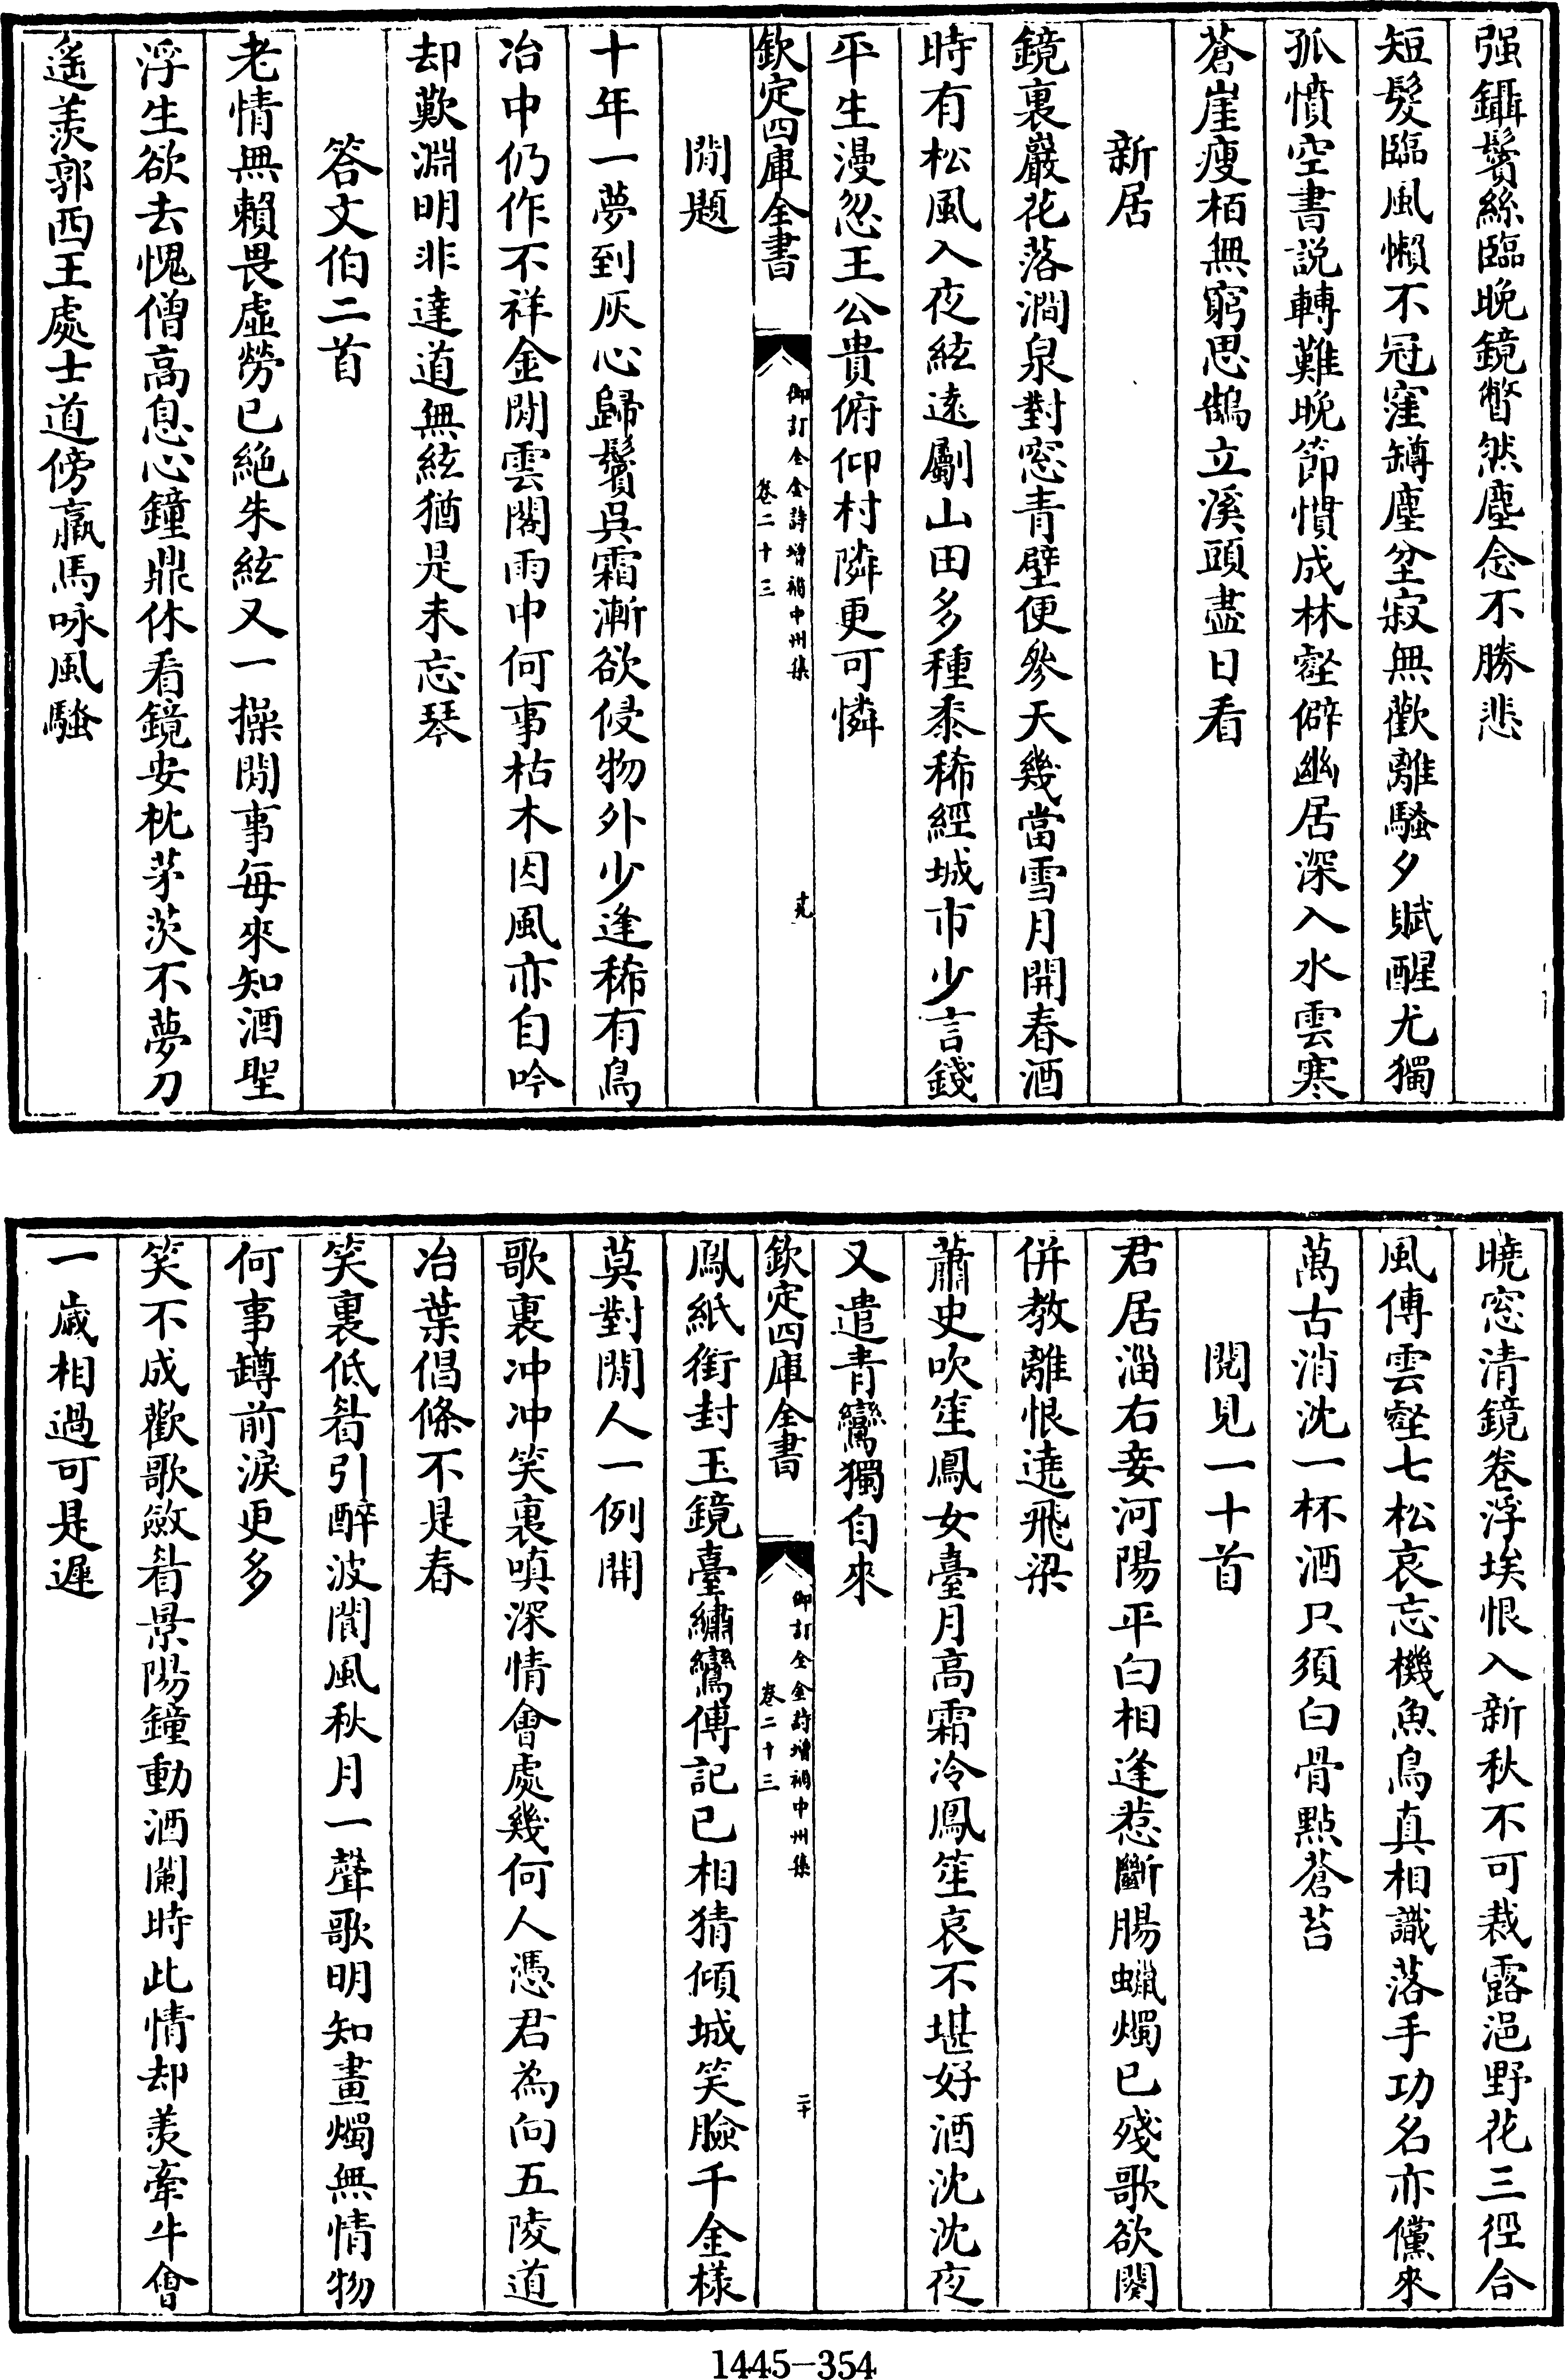 强鑷鬢絲臨晚鏡瞥然塵念不勝悲
短髮臨風懶不冠窪罇塵坌寂無歡離騷夕賦醒尤獨
孤憤空書説轉難晚節慣成林壑僻幽居深入水雲寒
蒼崖瘦栢無窮思鵠立溪頭盡日看
新居
鏡裏巖花落澗泉對窓青壁便參天幾當雪月開春酒
時有松風入夜絃遠劚山田多種黍稀經城市少言錢
平生漫忽王公貴俯仰村隣更可憐
欽定四庫全書
御訂全金詩增補中州集
卷二十三
十九
閒題
十年一夢到灰心歸鬢吳霜漸欲侵物外少逢稀有鳥
冶中仍作不祥金閒雲閣雨中何事枯木因風亦自吟
却歎淵明非達道無絃猶是未忘琴
答文伯二首
老情無賴畏虛勞已絶朱絃又一操閒事每來知酒聖
浮生欲去愧僧高息心鐘鼎休看鏡安枕茅茨不夢刀
遙羨郭西王處士道傍羸馬咏風騷
曉窓清鏡卷浮埃恨入新秋不可裁露浥野花三徑合
風傳雲壑七松哀忘機魚鳥真相識落手功名亦儻來
萬古消沈一杯酒只須白骨點蒼苔
閱見一十首
君居淄右妾河陽平白相逢惹斷腸蠟燭已殘歌欲闋
併教離恨遶飛梁
蕭史吹笙鳳女臺月高霜冷鳳笙哀不堪好酒沈沈夜
又遣青鸞獨自來
欽定四庫全書
御訂全金詩增補中州集
卷二十三
二十
鳳紙銜封玉鏡臺繡鸞傳記已相猜傾城笑臉千金樣
莫對閒人一例開
歌裏冲冲笑裏嗔深情會處幾何人憑君為向五陵道
冶葉倡條不是春
笑裏低眉引醉波閒風秋月一聲歌明知畫燭無情物
何事罇前淚更多
笑不成歡歌斂眉景陽鐘動酒闌時此情却羨牽牛會
一歲相過可是遲
1445-354